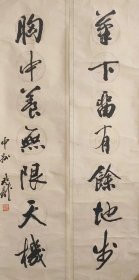 筆下留有餘地步
胸中養無限天機